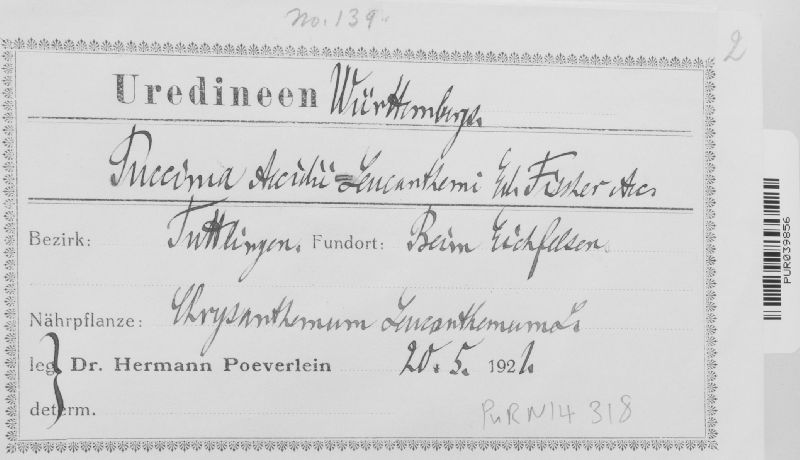 No. 139.
2
Uredineen Württembergs.
Puccinia Aecidii-Leucanthemi Ed. Fischer Aec.
Bezirk: Tuttlingen. Fundort: Beim Eichfelsen.
Nährpflanze: Chrysanthemum Leucanthemum L.
leg. Dr. Hermann Poeverlein 20. 5. 1921.
determ.
PUR N14 318
PUR039856